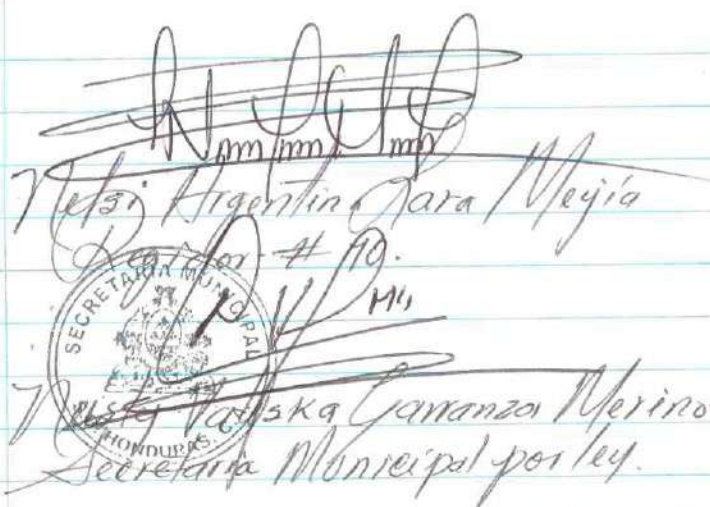 Nelsi Argentina Lara Mejía
Regidor # 10.
SECRETARIA MUNICIPAL
HONDURAS
Vaniska Carranza Merino
Secretaria Municipal por ley.